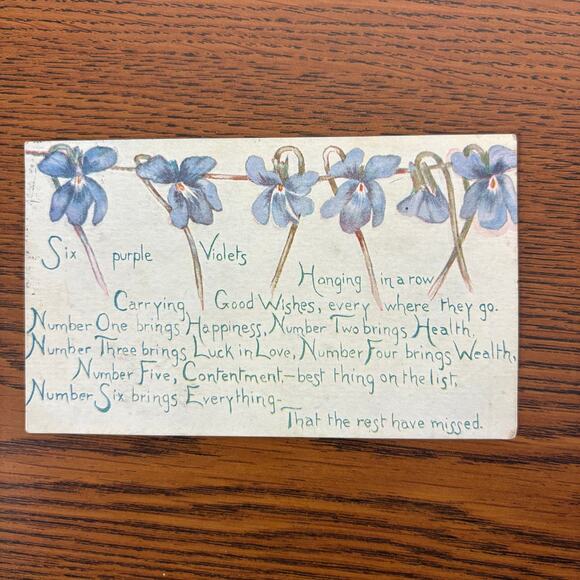 Six purple Violets
Hanging in a row
Carrying Good Wishes, every where they go.
Number One brings Happiness, Number Two brings Health.
Number Three brings Luck in Love, Number Four brings Wealth,
Number Five, Contentment,—best thing on the list,
Number Six brings Everything-
That the rest have missed.